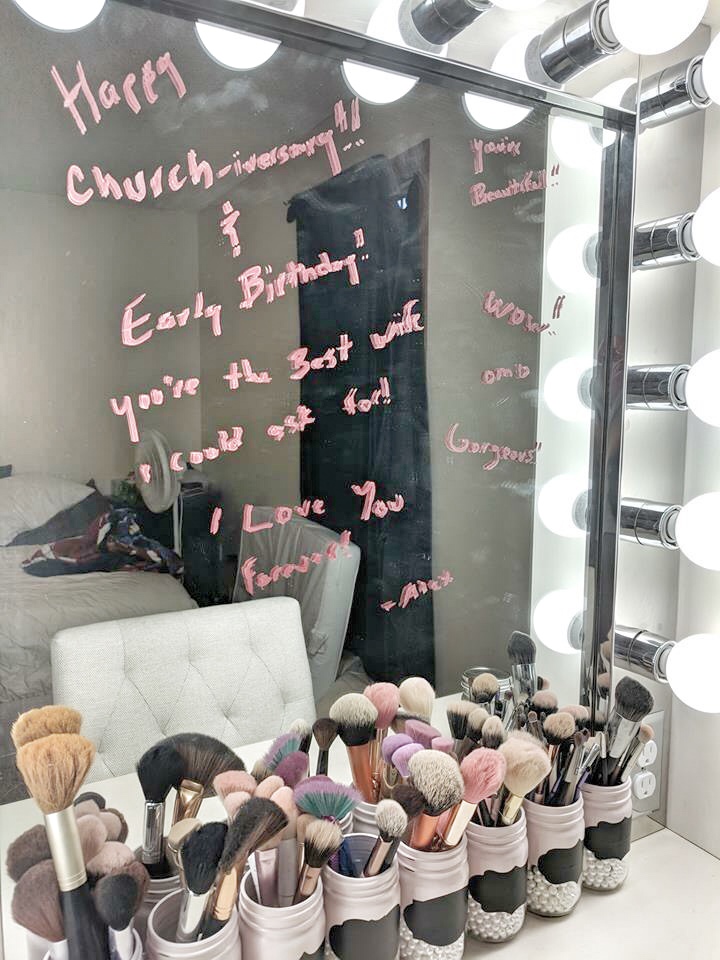 Happy
Church-iversary!!
&
Early Birthday!!
You're the Best wife
I could ask for!!
I Love You
Forever!!
-Alex
You're
Beautiful!!
WOW!!
omb
Gorgeous!!